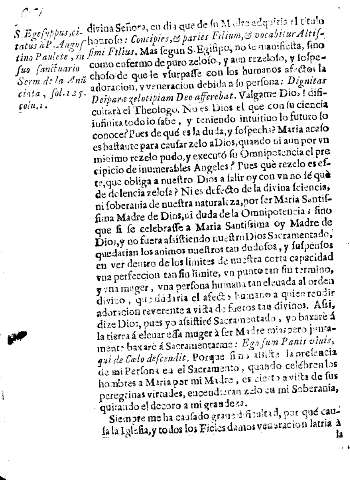 S. Egesippus, ci-
tatus à P. Augus-
tino Paulete, in
suo santuario
Serm. de la Anũ
ciata, fol. 125.
colu. 1.
divina Señora, en dia que de su Madre adquiria el titulo
honroso: Concipies, & paries Filium, & vocabitur Altis-
simi Filius. Mas segun S. Egisipo, no le manifiesta, sino
como enfermo de puro zeloso, y aun rezeloso, y sospe-
choso de que le usurpasse con los humanos afectos la
adoracion, y veneracion debida a su persona: Dignitar
Deipara zelotipiam Deo afferebat. Valgame Dios! difi-
cultará el Theologo. No es Dios el que con su ciencia
infinita todo lo sabe, y teniendo intuitiuo lo futuro lo
conoce? Pues de què es la duda, y sospecha? Maria acaso
es bastante para causar zelo a Dios, quando ni aun por vn
minimo rezelo pudo, y executó su Omnipotencia el pre-
cipicio de inumerables Angeles? Pues què rezelo es es-
te, que obliga a nuestro Dios a salir oy con vn no sè què
de dolencia zelosa? Ni es defecto de la divina sciencia,
ni soberania de nuestra naturaleza, por ser Maria Santis-
sima Madre de Dios, ni duda de la Omnipotencia: sino
que si se celebrasse a Maria Santissima oy Madre de
Dios, y no fuera asistiendo nuestro Dios Sacramentado,
quedarian los animos nuestros tan dudosos, y suspensos
en ver dentro de los limites de nuestra corta capacidad
vna perfeccion tan sin limite, vn punto tan sin termino,
y vna muger, vna persona humana tan eleuada al orden
divino, que dudaria el afecto humano a quien rendir
adoracion reverente a vista de fueros tan divinos. Assi,
dize Dios, pues yo assistirè Sacramentado, yo baxarè à
la tierra à eleuar essa muger à ser Madre mia; pero junta-
mente baxarè à Sacramentarme: Ego sum Panis vivus,
qui de Cælo descendit. Porque si no assiste la presencia
de mi Persona en el Sacramento, quando celebren los
hombres a Maria por mi Madre, es cierto a vista de sus
peregrinas virtudes, encenderan zelo en mi Soberania,
quitando el decoro a mi grandeza.
Siempre me ha causado grande dificultad, por què cau-
sa la Iglesia, y todos los Fieles damos veneracion latria à
la